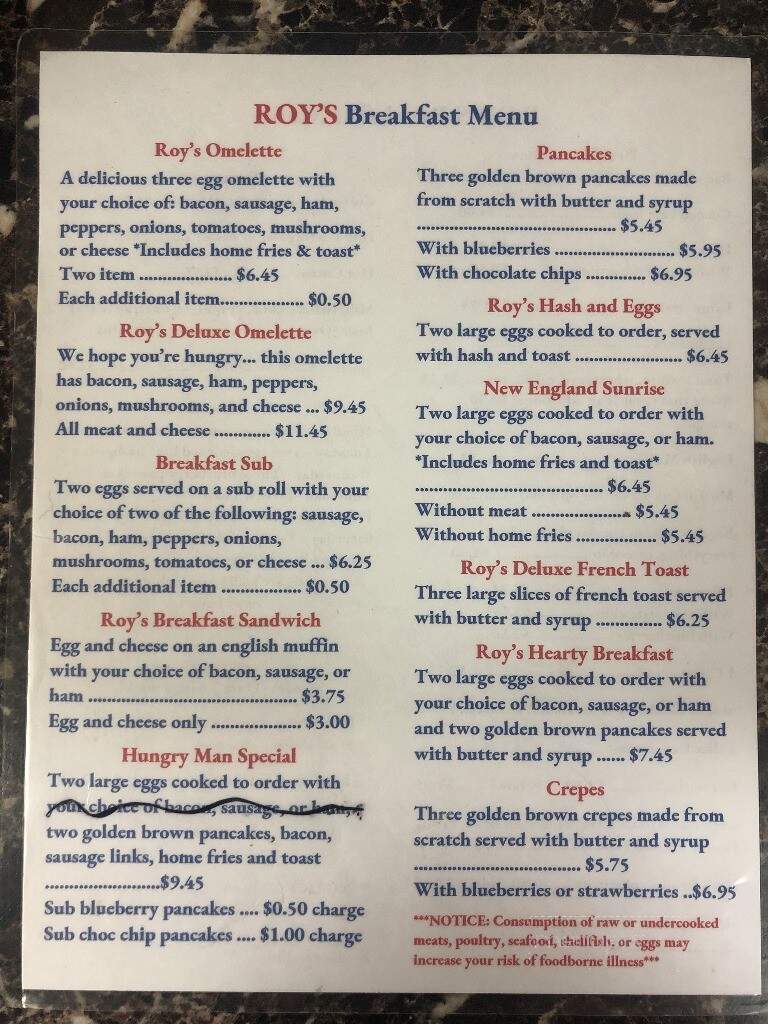 ROY'S Breakfast Menu
Roy's Omelette
A delicious three egg omelette with
your choice of: bacon, sausage, ham,
peppers, onions, tomatoes, mushrooms,
or cheese *Includes home fries & toast*
Two item .................... $6.45
Each additional item.................. $0.50
Roy's Deluxe Omelette
We hope you're hungry... this omelette
has bacon, sausage, ham, peppers,
onions, mushrooms, and cheese ... $9.45
All meat and cheese ............ $11.45
Breakfast Sub
Two eggs served on a sub roll with your
choice of two of the following: sausage,
bacon, ham, peppers, onions,
mushrooms, tomatoes, or cheese ... $6.25
Each additional item ................. $0.50
Roy's Breakfast Sandwich
Egg and cheese on an english muffin
with your choice of bacon, sausage, or
ham ............................................. $3.75
Egg and cheese only ................... $3.00
Hungry Man Special
Two large eggs cooked to order with
your choice of bacon, sausage, or ham,
two golden brown pancakes, bacon,
sausage links, home fries and toast
.........................$9.45
Sub blueberry pancakes .... $0.50 charge
Sub choc chip pancakes .... $1.00 charge
Pancakes
Three golden brown pancakes made
from scratch with butter and syrup
........................................... $5.45
With blueberries .......................... $5.95
With chocolate chips ............. $6.95
Roy's Hash and Eggs
Two large eggs cooked to order, served
with hash and toast ....................... $6.45
New England Sunrise
Two large eggs cooked to order with
your choice of bacon, sausage, or ham.
*Includes home fries and toast*
........................................ $6.45
Without meat ....................... $5.45
Without home fries ................. $5.45
Roy's Deluxe French Toast
Three large slices of french toast served
with butter and syrup .............. $6.25
Roy's Hearty Breakfast
Two large eggs cooked to order with
your choice of bacon, sausage, or ham
and two golden brown pancakes served
with butter and syrup ...... $7.45
Crepes
Three golden brown crepes made from
scratch served with butter and syrup
.................................... $5.75
With blueberries or strawberries ..$6.95
***NOTICE: Consumption of raw or undercooked
meats, poultry, seafood, shellfish, or eggs may
increase your risk of foodborne illness***